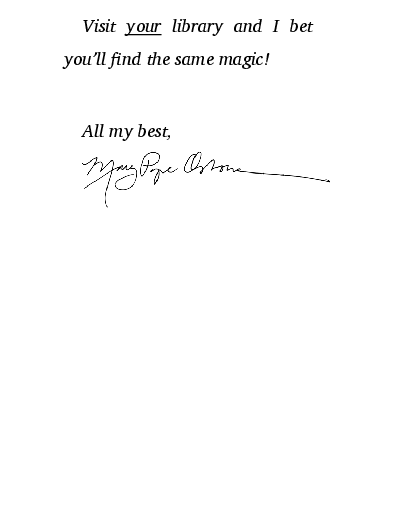 Visit your library and I bet
you’ll find the same magic!
All my best,
Mary Pope Osborne